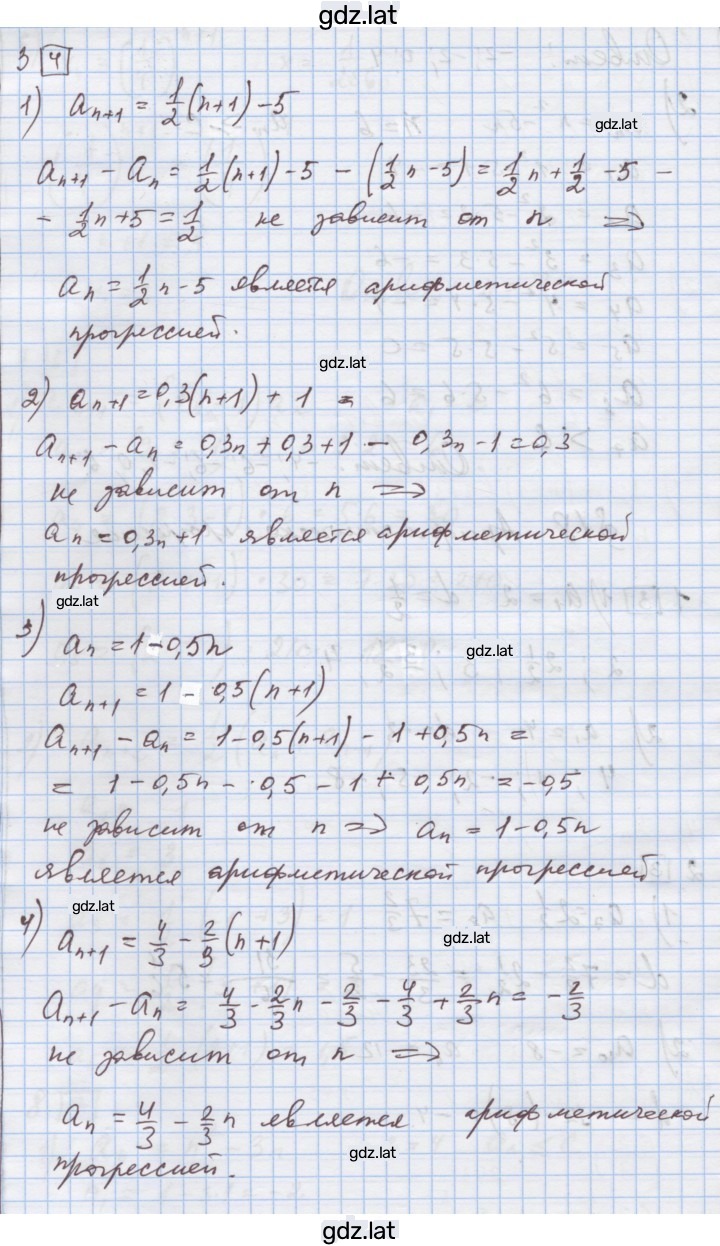 gdz.lat
3 4
1) aₙ₊₁ = 1/2 (n+1) - 5
gdz.lat
aₙ₊₁ - aₙ = 1/2 (n+1) - 5 - (1/2 n - 5) = 1/2 n + 1/2 - 5 -
- 1/2 n + 5 = 1/2 не зависит от n ⟹
aₙ = 1/2 n - 5 является арифметической
прогрессией.
gdz.lat
2) aₙ₊₁ = 0,3(n+1) + 1 =
aₙ₊₁ - aₙ = 0,3n + 0,3 + 1 - 0,3n - 1 = 0,3
не зависит от n ⟹
aₙ = 0,3n + 1 является арифметической
прогрессией.
gdz.lat
3) aₙ = 1 - 0,5n
gdz.lat
aₙ₊₁ = 1 - 0,5(n+1)
aₙ₊₁ - aₙ = 1 - 0,5(n+1) - 1 + 0,5n =
= 1 - 0,5n - 0,5 - 1 + 0,5n = -0,5
не зависит от n ⟹ aₙ = 1 - 0,5n
является арифметической прогрессией
gdz.lat
4) aₙ₊₁ = 4/3 - 2/3 (n+1)
gdz.lat
aₙ₊₁ - aₙ = 4/3 - 2/3 n - 2/3 - 4/3 + 2/3 n = - 2/3
не зависит от n ⟹
aₙ = 4/3 - 2/3 n является арифметической
прогрессией.
gdz.lat
gdz.lat